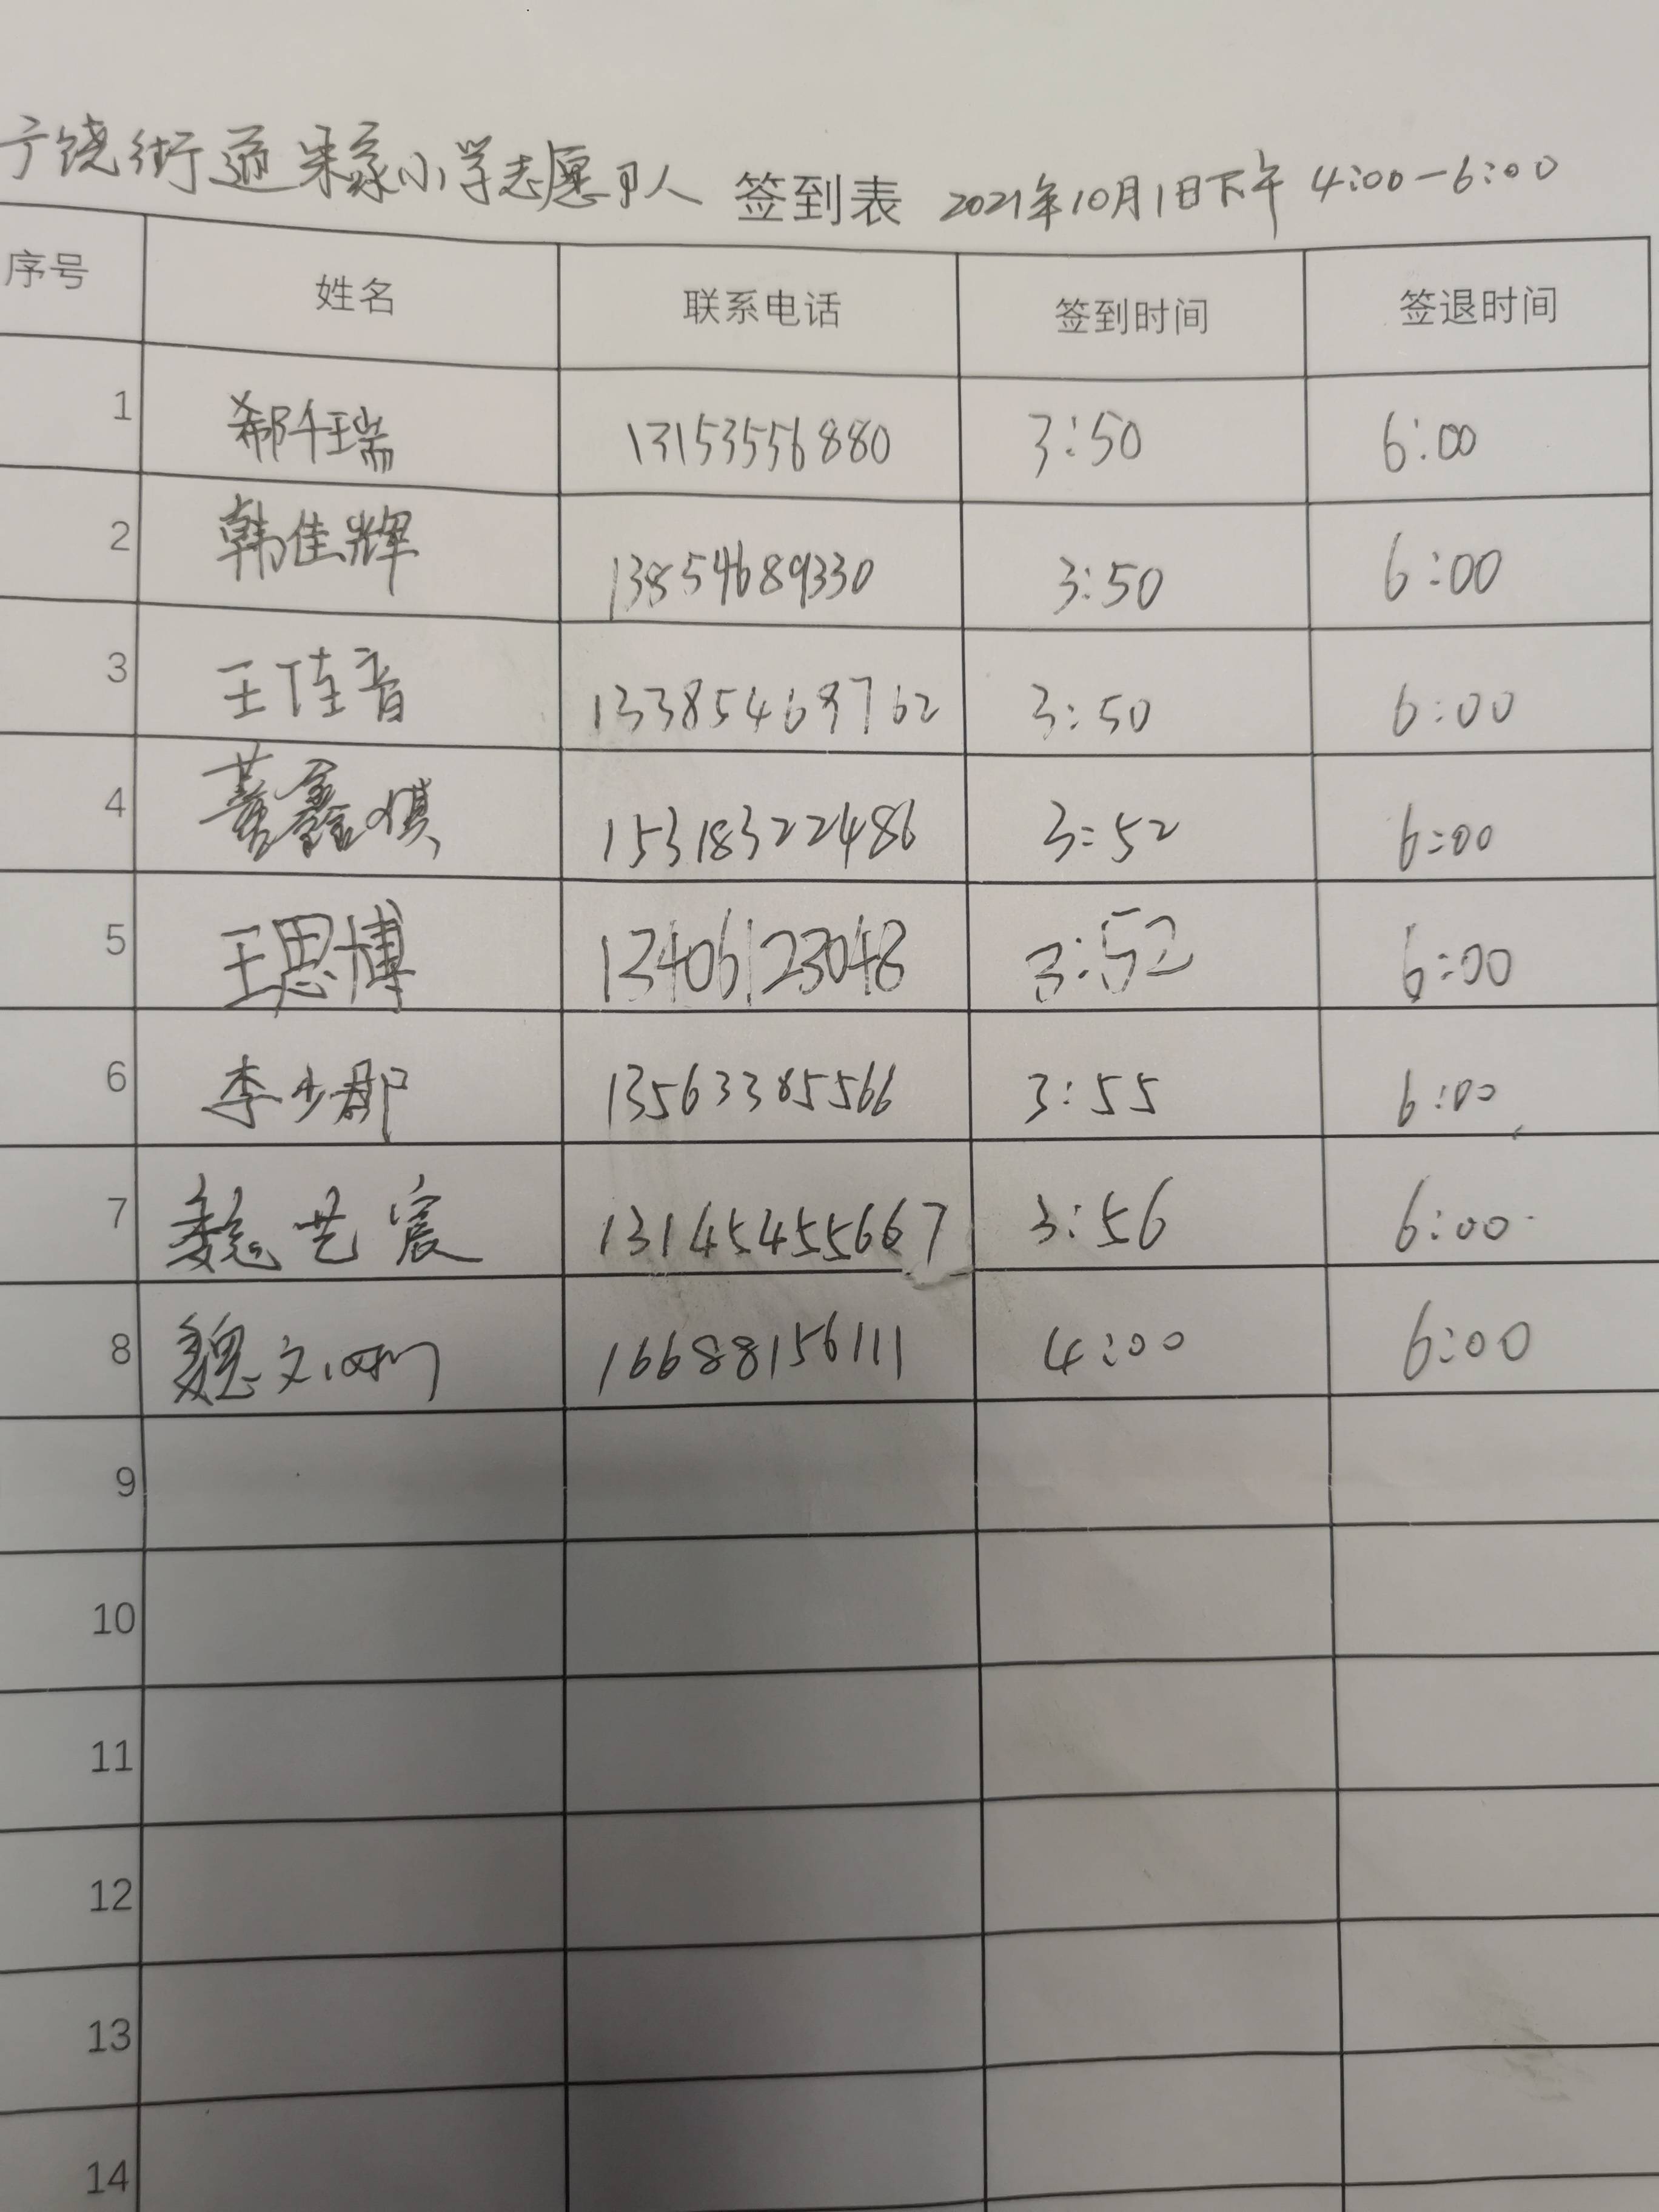 街道朱家小学志愿 人 签到表 2021年10月1日下午 4:00-6:00
序号 姓名 联系电话 签到时间 签退时间
1 郗千瑞 13153556880 3:50 6:00
2 韩佳辉 13854689330 3:50 6:00
3 王佳音 133854689762 3:50 6:00
4 董鑫 15318322486 3:52 6:00
5 王思博 13406123048 3:52 6:00
6 李少郡 13563385566 3:55 6:00
7 魏艺宸 13145455667 3:56 6:00
8 魏文 16688156111 4:00 6:00
9
10
11
12
13
14